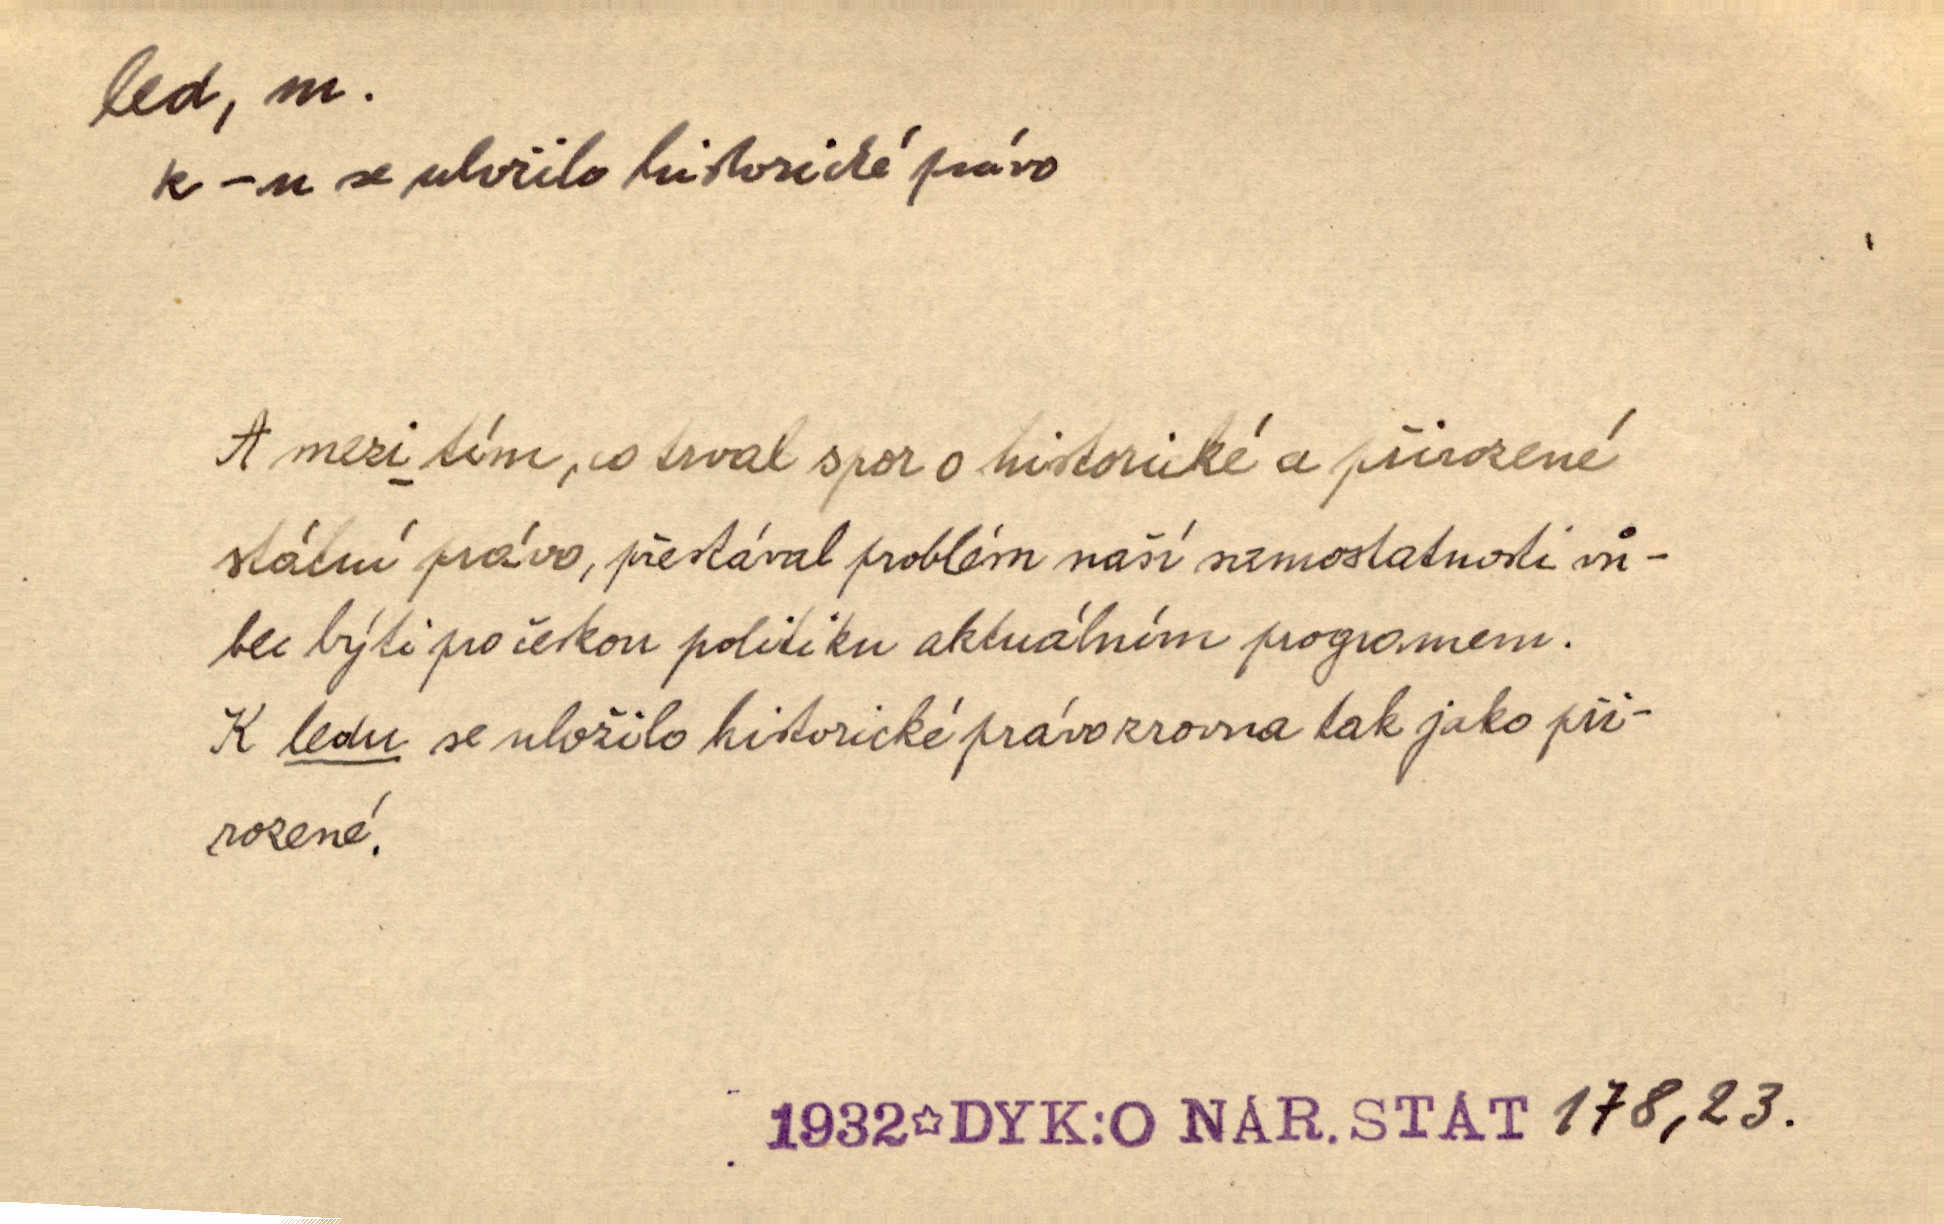 led, m.
k -u se uložilo historické právo
A mezi tím, co trval spor o historické a přirozené
státní právo, přestával problém naší samostatnosti vů-
bec býti pro českou politiku aktuálním programem.
K ledu se uložilo historické právo zrovna tak jako při-
rozené.
1932☆DYK:O NÁR.STÁT 178,23.